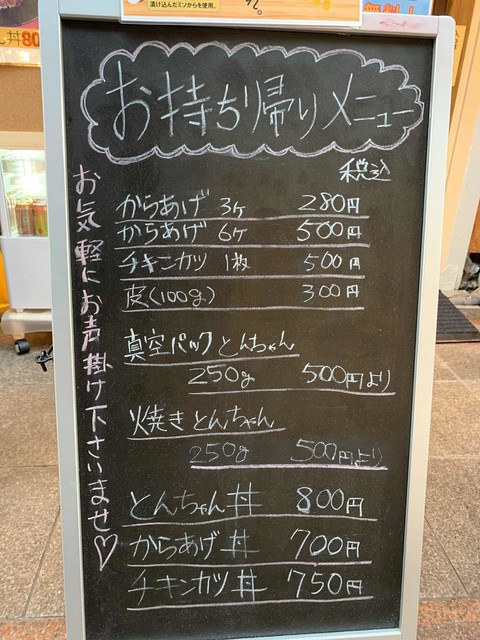 漬け込みミソからを使用。
お持ち帰りメニュー
税込
からあげ 3ヶ 280円
からあげ 6ヶ 500円
チキンカツ 1枚 500円
皮(100g) 300円
真空パックとんちゃん
250g 500円より
焼きとんちゃん
250g 500円より
とんちゃん丼 800円
からあげ丼 700円
チキンカツ丼 750円
お気軽にお声掛け下さいませ♡